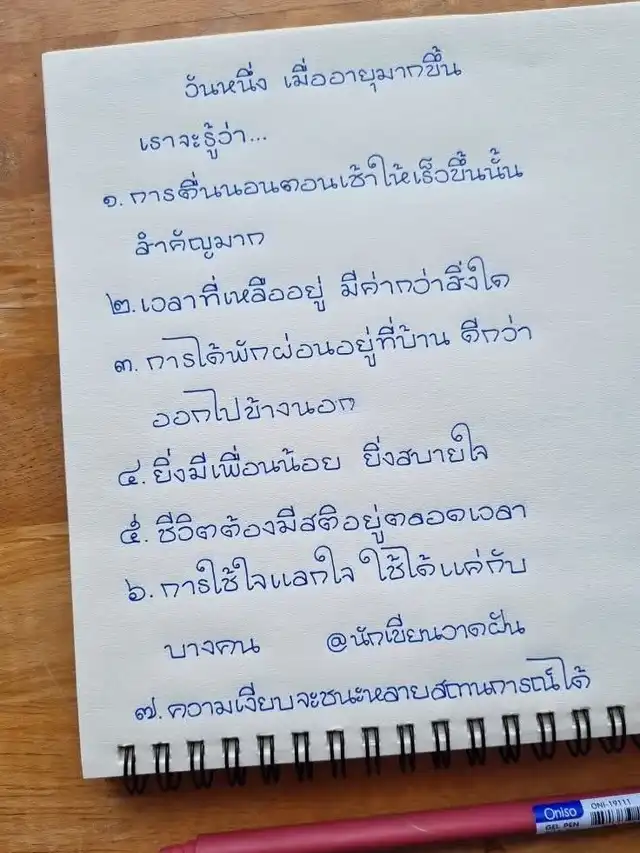 วันหนึ่ง เมื่ออายุมากขึ้น
เราจะรู้ว่า...
๑. การตื่นนอนตอนเช้าให้เร็วขึ้นนั้น
สำคัญมาก
๒. เวลาที่เหลืออยู่ มีค่ากว่าสิ่งใด
๓. การได้พักผ่อนอยู่ที่บ้าน ดีกว่า
ออกไปข้างนอก
๔. ยิ่งมีเพื่อนน้อย ยิ่งสบายใจ
๕. ชีวิตต้องมีสติอยู่ตลอดเวลา
๖. การใช้ใจแลกใจ ใช้ได้แค่กับ
บางคน @นักเขียนวาดฝัน
๗. ความเงียบจะชนะหลายสถานการณ์ได้
Oniso ONI-19111
GEL PEN